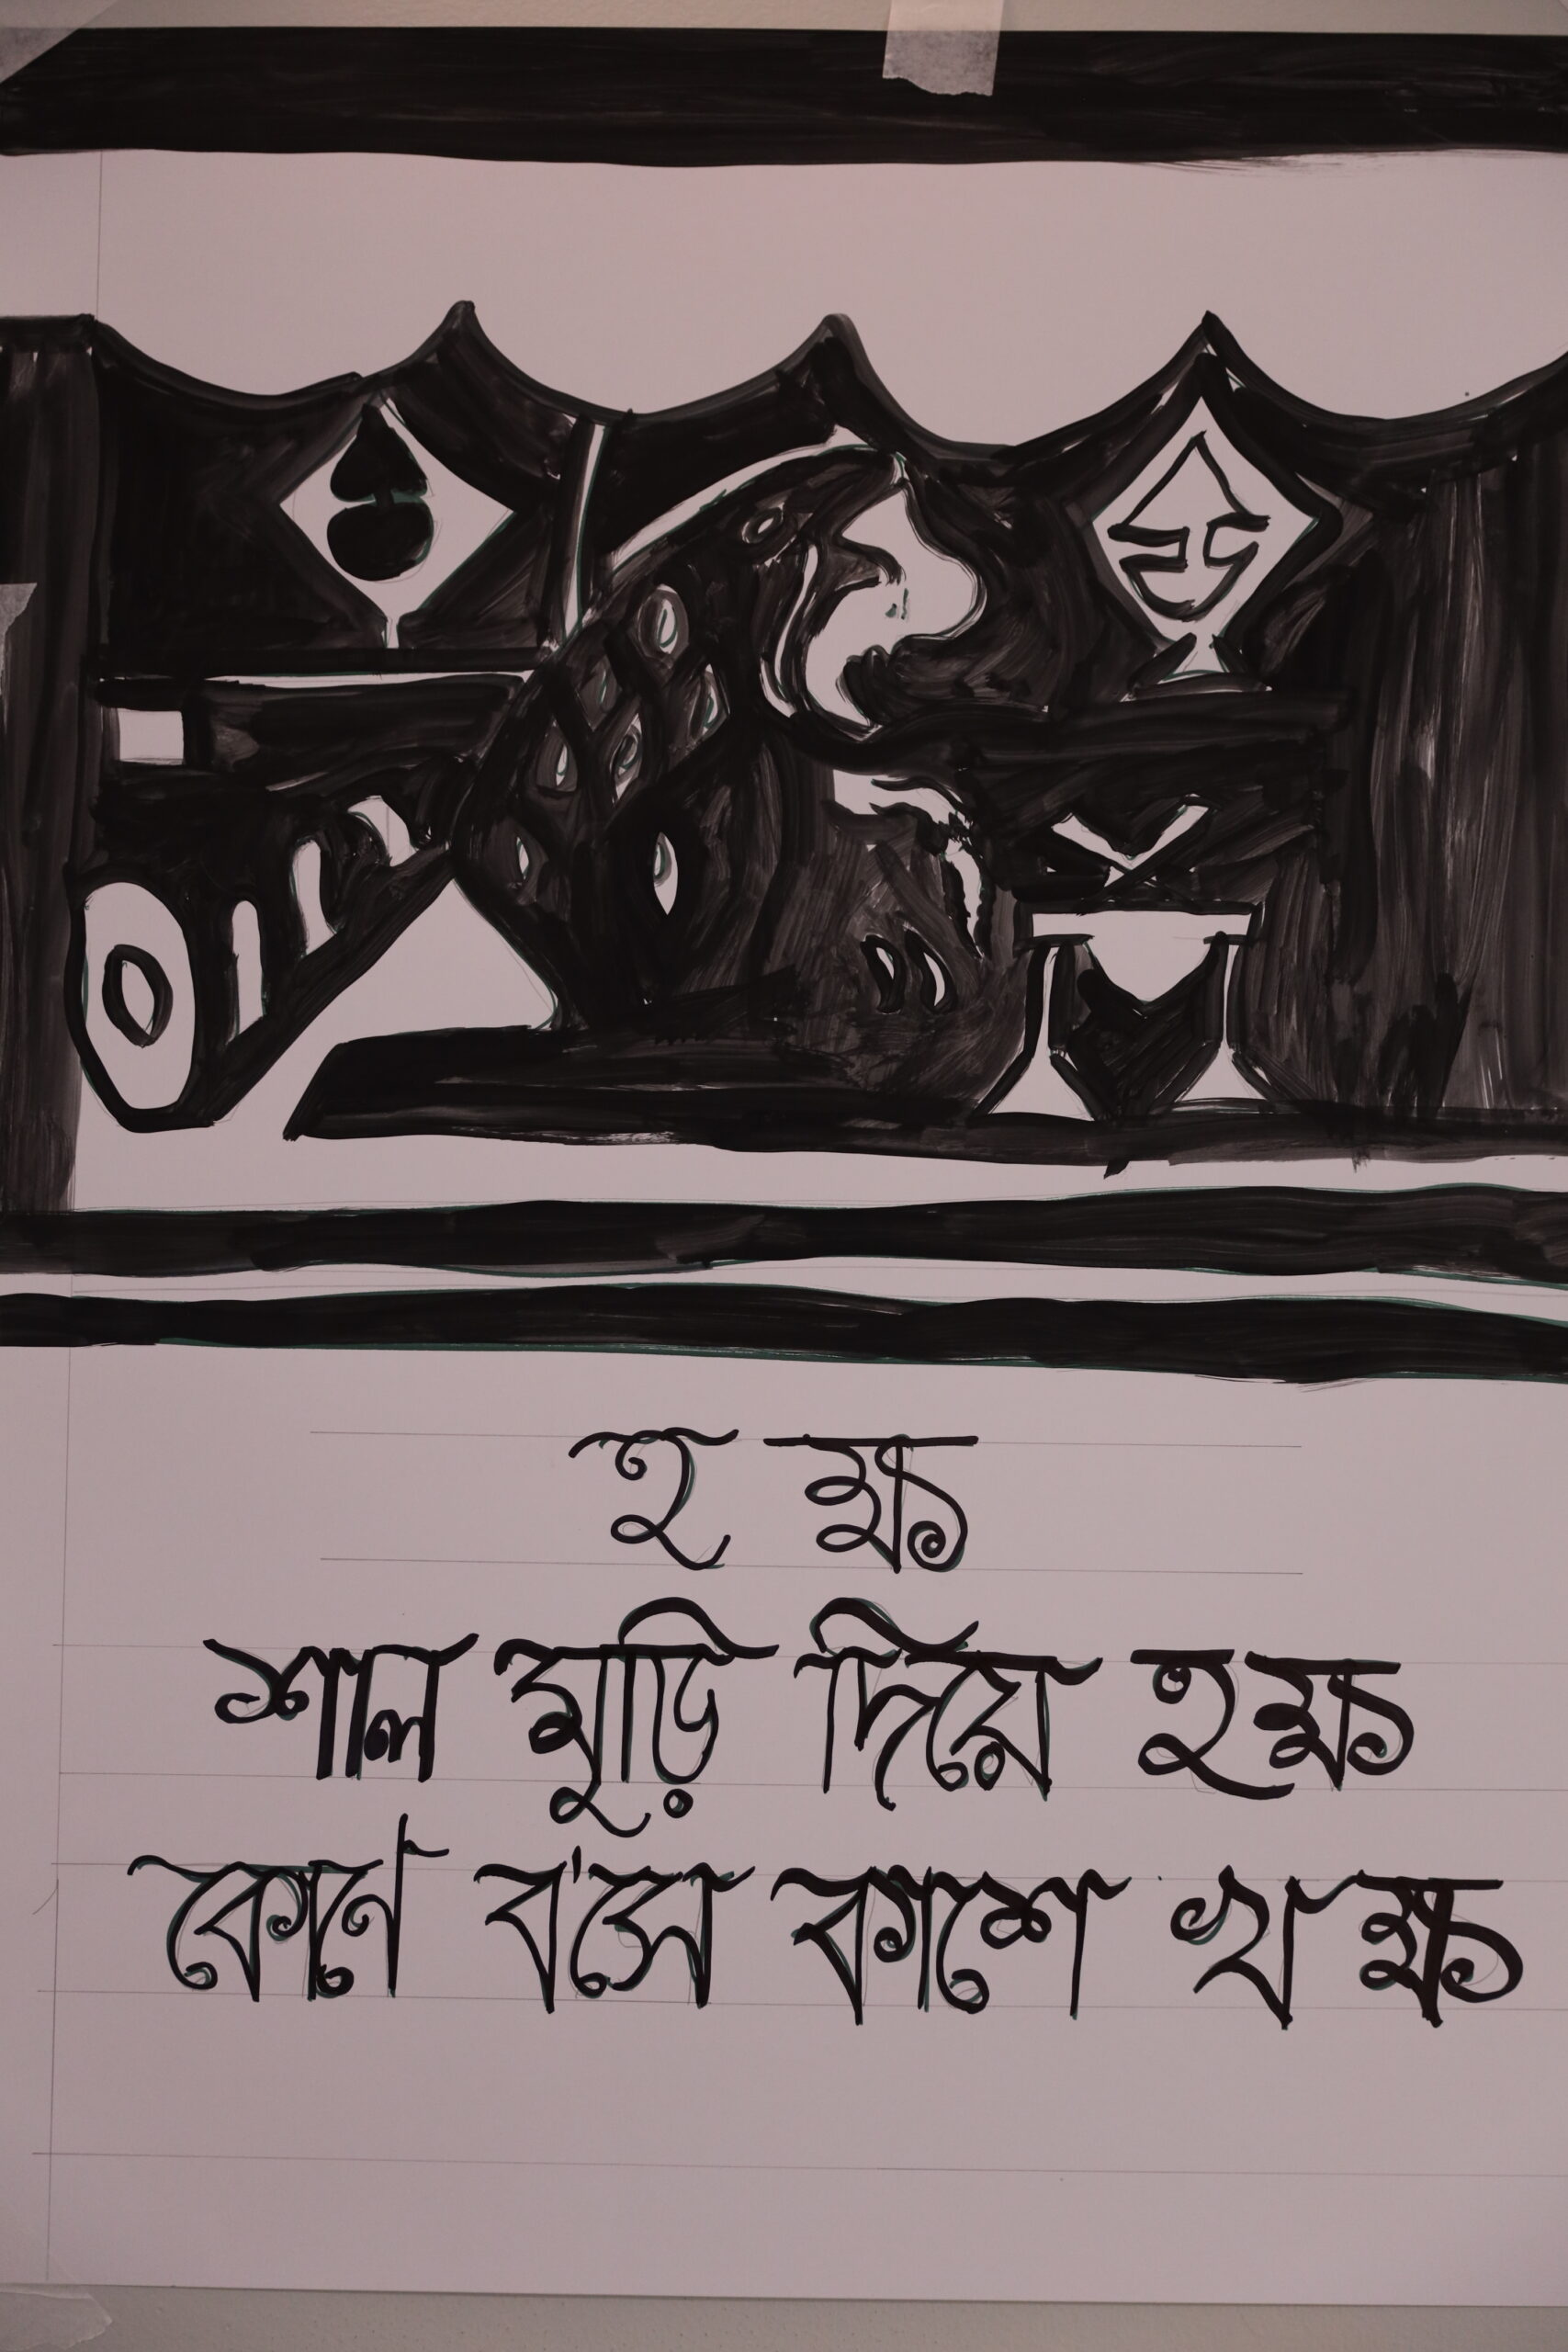 হ ক্ষ
শাল মুড়ি দিয়ে হক্ষ
কোণে ব'সে কাশে খ ক্ষ